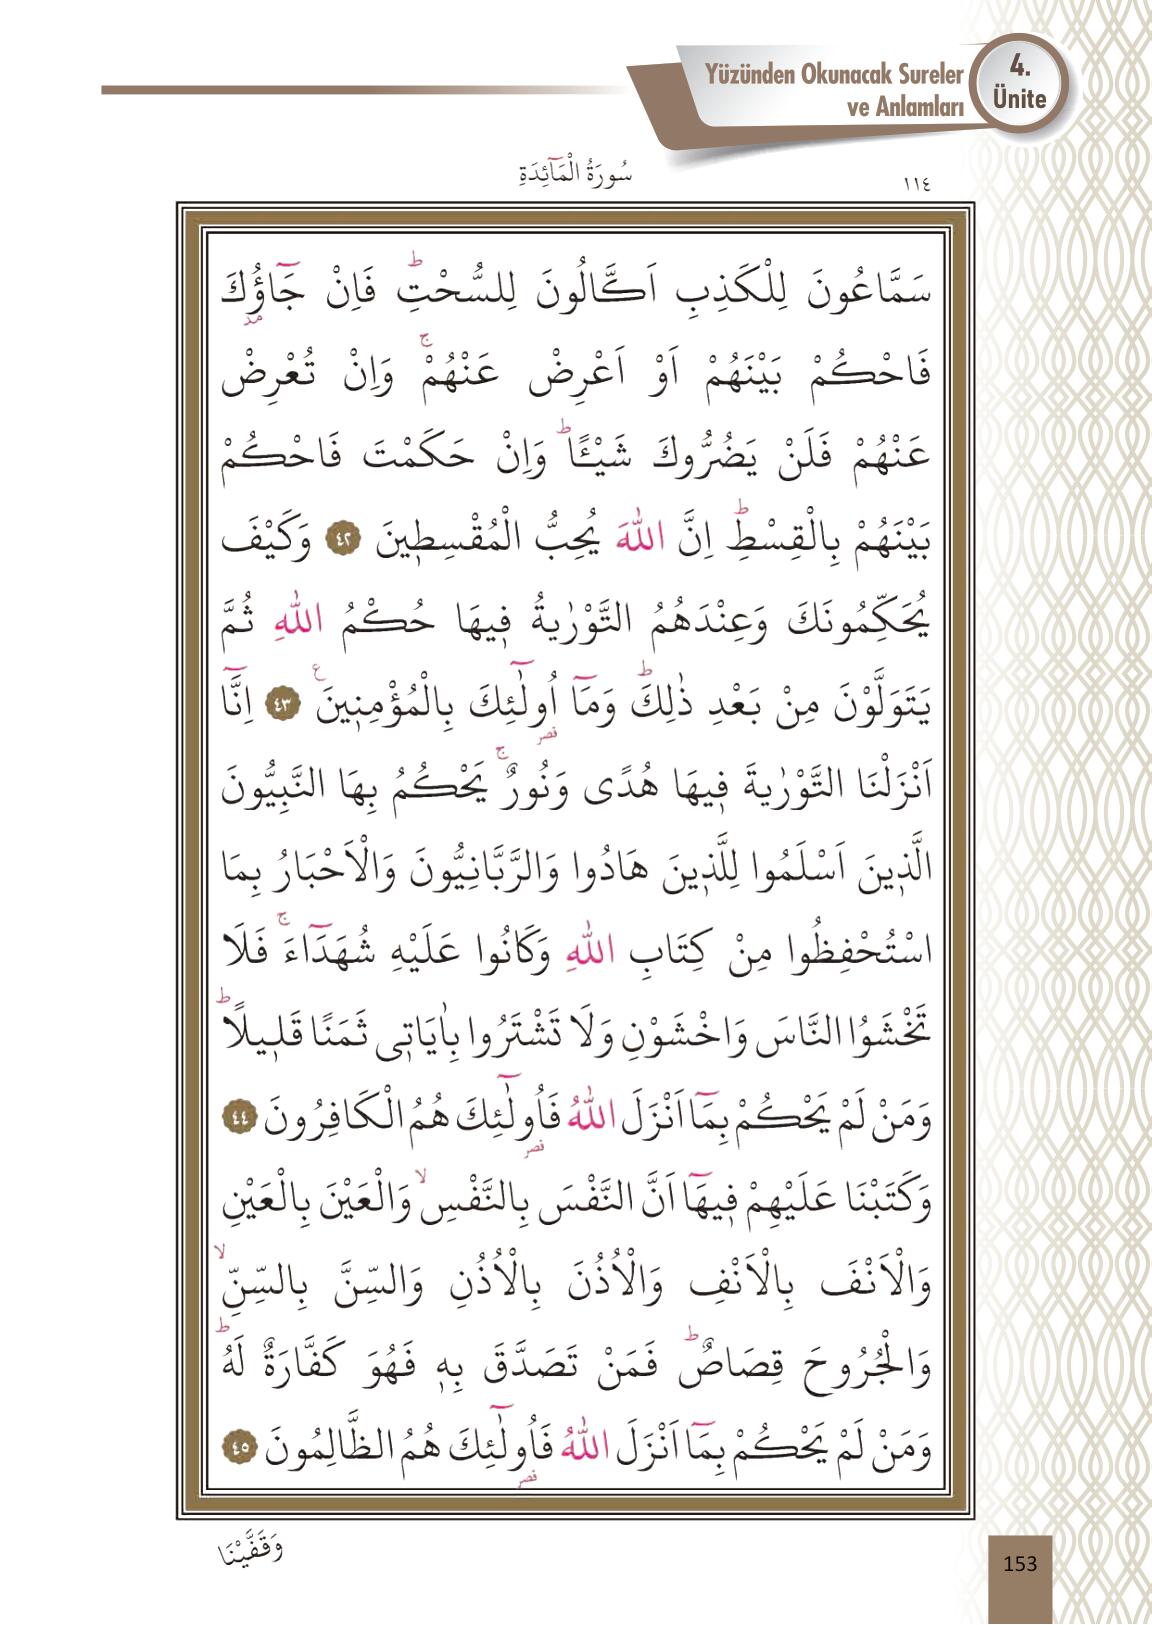 Yüzünden Okunacak Sureler
ve Anlamları
4.
Ünite
سُورَةُ الْمَٓائِدَةِ
١١٤
سَمَّاعُونَ لِلْكَذِبِ اَكَّالُونَ لِلسُّحْتِۜ فَاِنْ جَٓاؤُ۫كَ
فَاحْكُمْ بَيْنَهُمْ اَوْ اَعْرِضْ عَنْهُمْۚ وَاِنْ تُعْرِضْ
عَنْهُمْ فَلَنْ يَضُرُّوكَ شَيْـًٔاۜ وَاِنْ حَكَمْتَ فَاحْكُمْ
بَيْنَهُمْ بِالْقِسْطِۜ اِنَّ اللّٰهَ يُحِبُّ الْمُقْسِط۪ينَ ٤٢ وَكَيْفَ
يُحَكِّمُونَكَ وَعِنْدَهُمُ التَّوْرٰيةُ ف۪يهَا حُكْمُ اللّٰهِ ثُمَّ
يَتَوَلَّوْنَ مِنْ بَعْدِ ذٰلِكَۜ وَمَٓا اُو۬لٰٓئِكَ بِالْمُؤْمِن۪ينَ۟ ٤٣ اِنَّٓا
اَنْزَلْنَا التَّوْرٰيةَ ف۪يهَا هُدًى وَنُورٌۚ يَحْكُمُ بِهَا النَّبِيُّونَ
الَّذ۪ينَ اَسْلَمُوا لِلَّذ۪ينَ هَادُوا وَالرَّبَّانِيُّونَ وَالْاَحْبَارُ بِمَا
اسْتُحْفِظُوا مِنْ كِتَابِ اللّٰهِ وَكَانُوا عَلَيْهِ شُهَدَٓاءَۚ فَلَا
تَخْشَوُا النَّاسَ وَاخْشَوْنِ وَلَا تَشْتَرُوا بِاٰيَات۪ي ثَمَنًا قَل۪يلًاۜ
وَمَنْ لَمْ يَحْكُمْ بِمَٓا اَنْزَلَ اللّٰهُ فَاُو۬لٰٓئِكَ هُمُ الْكَافِرُونَ ٤٤
وَكَتَبْنَا عَلَيْهِمْ ف۪يهَٓا اَنَّ النَّفْسَ بِالنَّفْسِۙ وَالْعَيْنَ بِالْعَيْنِ
وَالْاَنْفَ بِالْاَنْفِ وَالْاُذُنَ بِالْاُذُنِ وَالسِّنَّ بِالسِّنِّۙ
وَالْجُرُوحَ قِصَاصٌۜ فَمَنْ تَصَدَّقَ بِه۪ فَهُوَ كَفَّارَةٌ لَهُۜ
وَمَنْ لَمْ يَحْكُمْ بِمَٓا اَنْزَلَ اللّٰهُ فَاُو۬لٰٓئِكَ هُمُ الظَّالِمُونَ ٤٥
وَقَفَّيْنَا
153